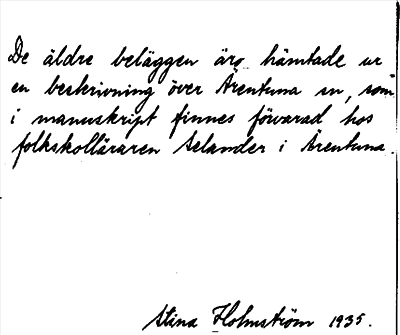 De äldre beläggen äro hämtade ur
en beskrivning över Ärentuna sn, som
i manuskript finnes förvarad hos
folkskolläraren Selander i Ärentuna.
Stina Holmström 1935.